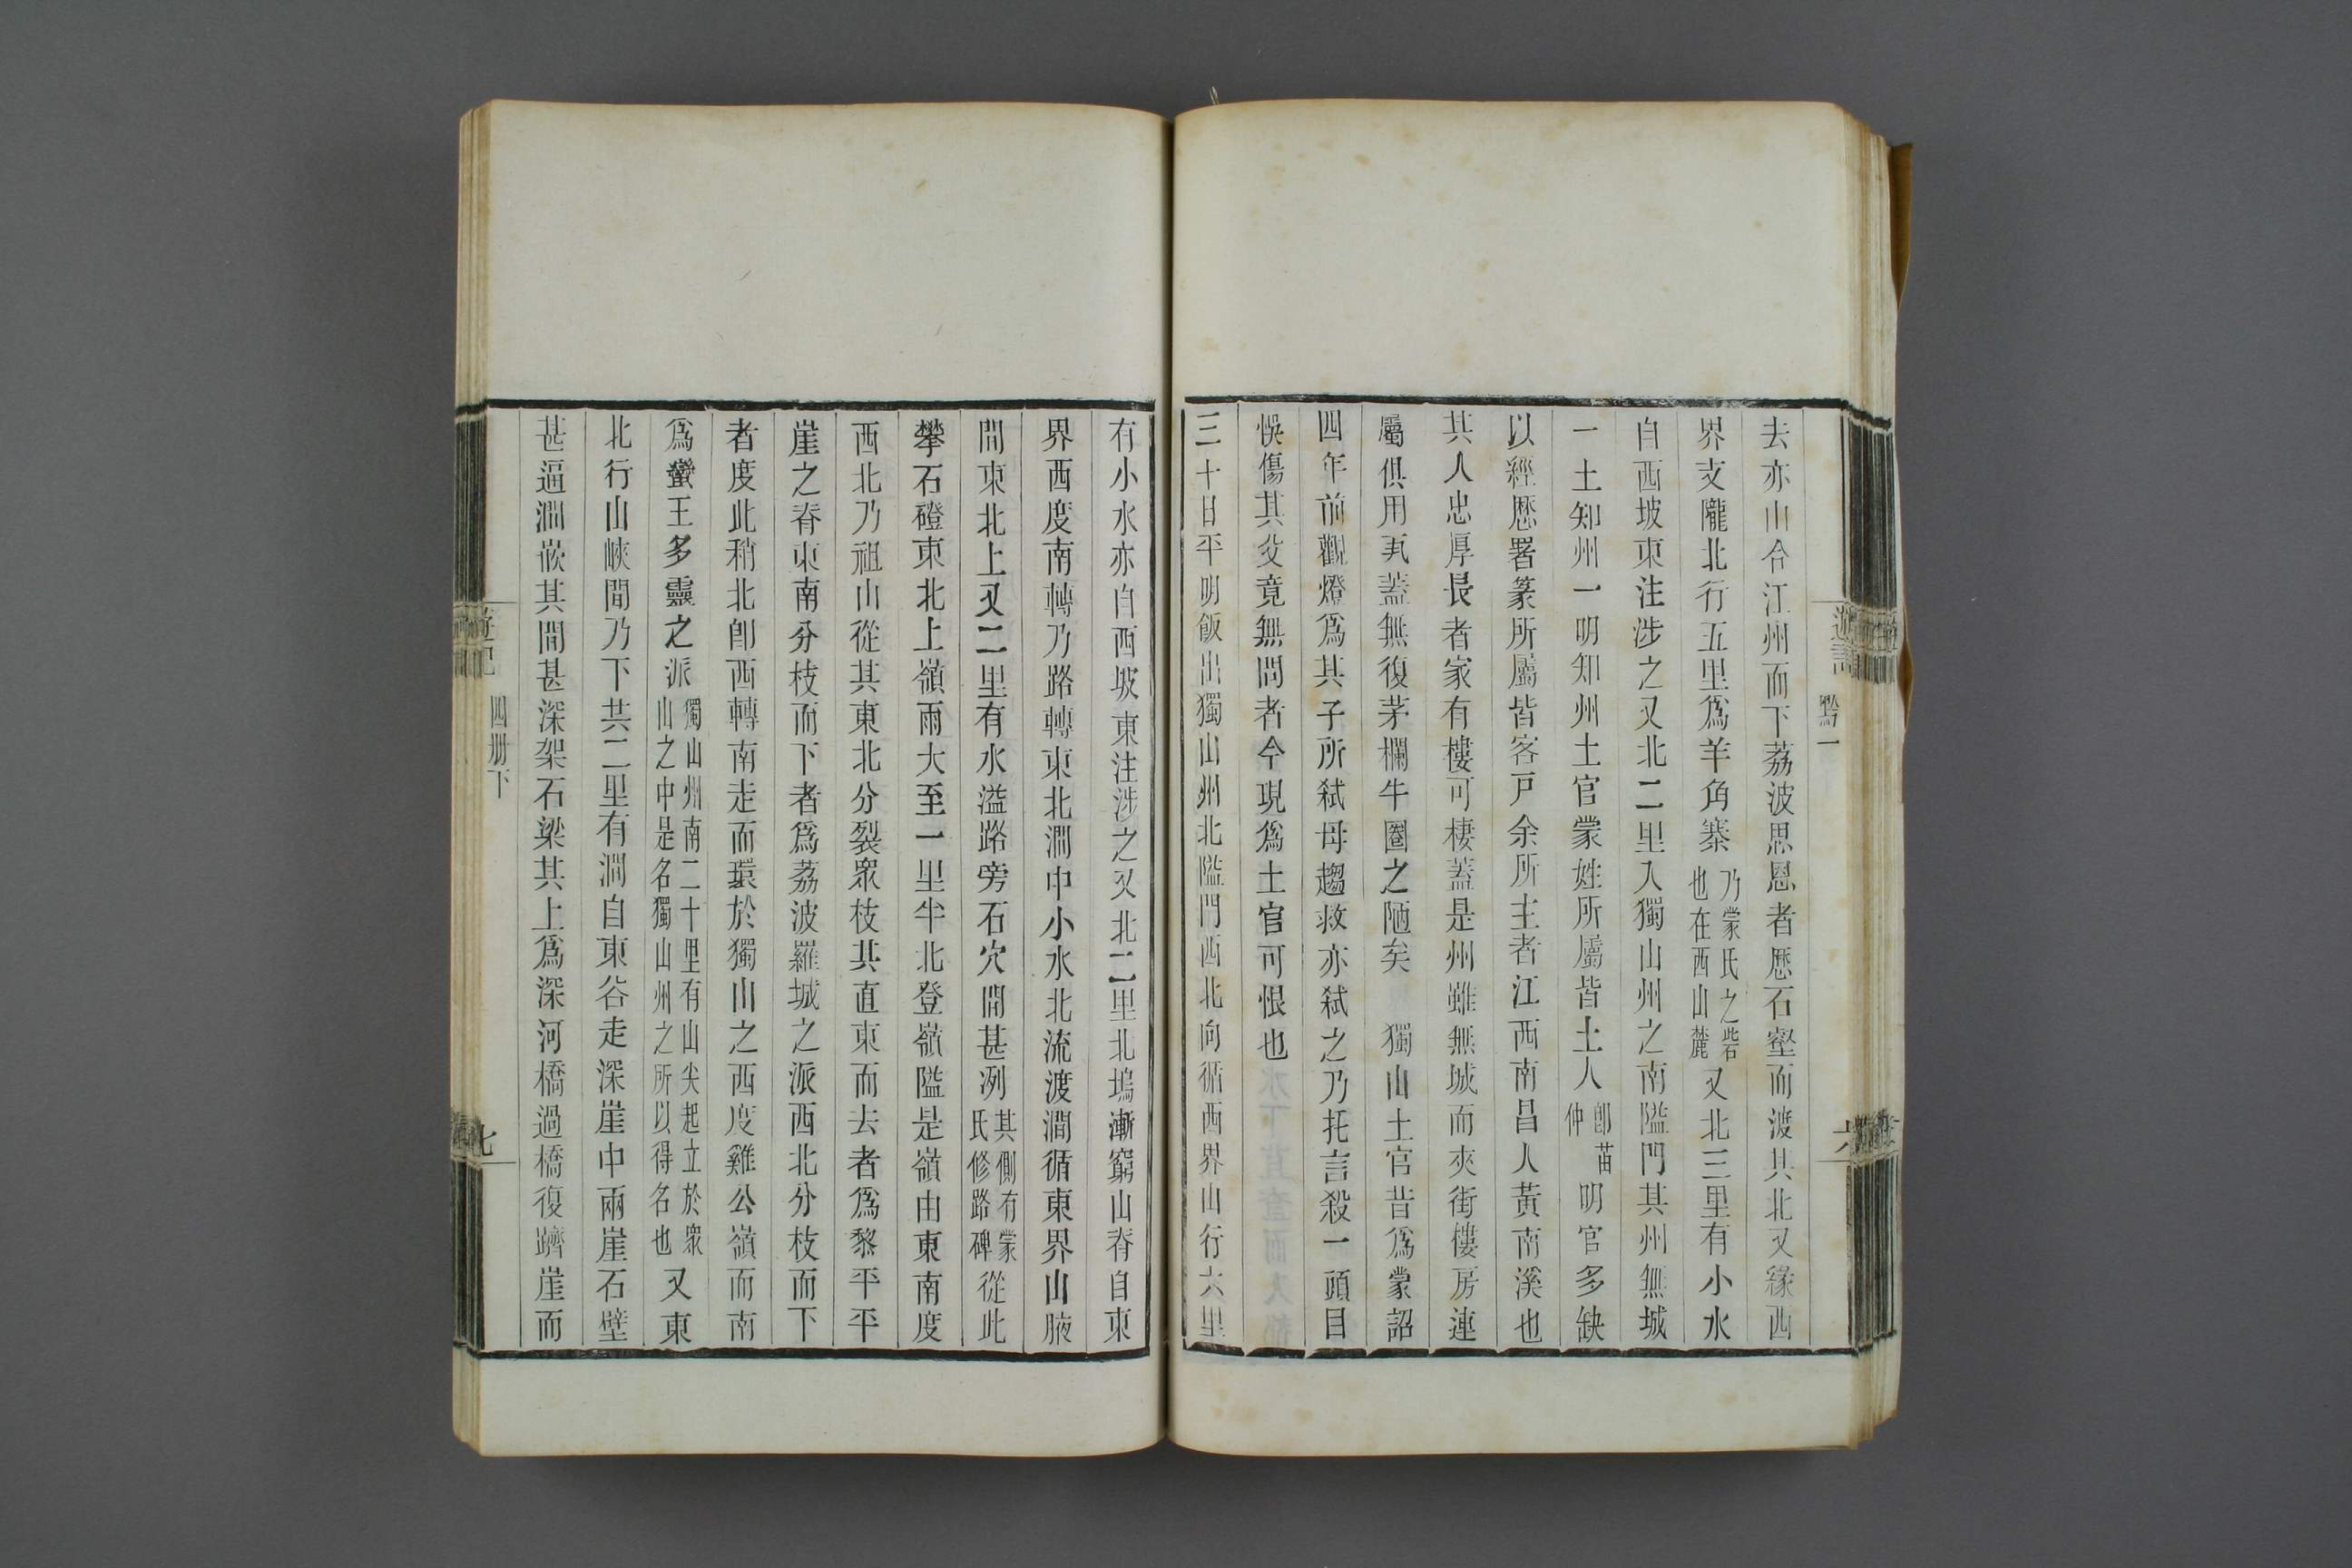 遊記 黔一 六
去亦山合江州而下荔波思恩者歷石壑而渡其北又緣西
界支隴北行五里爲羊角寨乃蒙氏之砦也在西山麓又北三里有小水
自西坡東注涉之又北二里入獨山州之南隘門其州無城
一土知州一明知州土官蒙姓所屬皆土人卽苗仲明官多缺
以經歷署篆所屬皆客戶余所主者江西南昌人黃南溪也
其人忠厚長者家有樓可棲蓋是州雖無城而夾街樓房連
屬俱用瓦蓋無復茅欄牛圈之陋矣 獨山土官昔爲蒙詔
四年前觀燈爲其子所弒母趨救亦弒之乃托言殺一頭目
悞傷其父竟無問者今現爲土官可恨也
三十日平明飯出獨山州北隘門西北向循西界山行六里
有小水亦自西坡東注涉之又北二里北塢漸窮山脊自東
界西度南轉乃路轉東北澗中小水北流渡澗循東界山腋
間東北上又二里有水溢路旁石穴間甚冽其側有蒙氏修路碑從此
攀石磴東北上嶺雨大至一里半北登嶺隘是嶺由東南度
西北乃祖山從其東北分裂眾枝其直東而去者爲黎平平
崖之脊東南分枝而下者爲荔波羅城之派西北分枝而下
者度此稍北卽西轉南走而環於獨山之西度雞公嶺而南
爲蠻王多靈之派獨山州南二十里有山尖起立於眾山之中是名獨山州之所以得名也又東
北行山峽間乃下共二里有澗自東谷走深崖中兩崖石壁
甚逼澗嵌其間甚深架石梁其上爲深河橋過橋復躋崖而
遊記 四册下 七